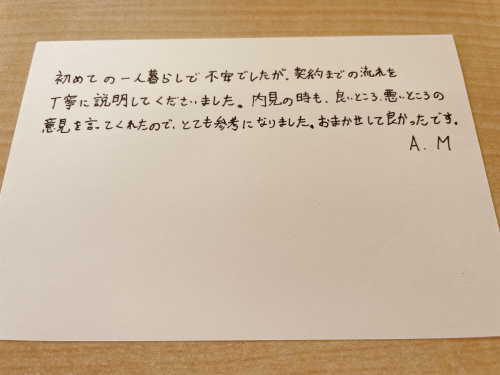 初めての一人暮らしで不安でしたが、契約までの流れを
丁寧に説明してくださいました。内見の時も、良いところ、悪いところの
意見を言ってくれたので、とても参考になりました。おまかせして良かったです。
A.M